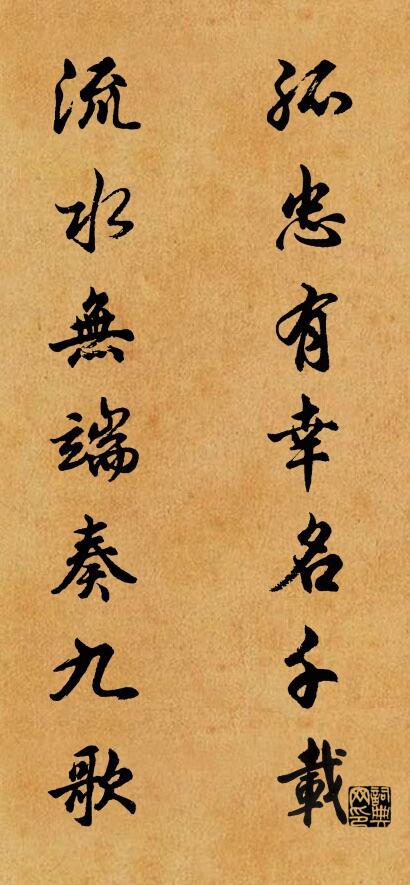 孤忠有幸名千載
流水無端奏九歌
詞典網印